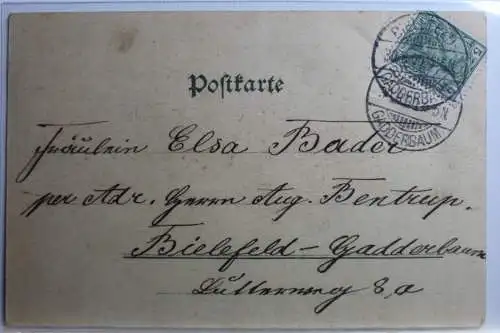 Postkarte
GADDERBAUM
Fräulein Elsa Bader
per Adr. Herrn Aug. Bentrup.
Bielefeld-Gadderbaum
8,a